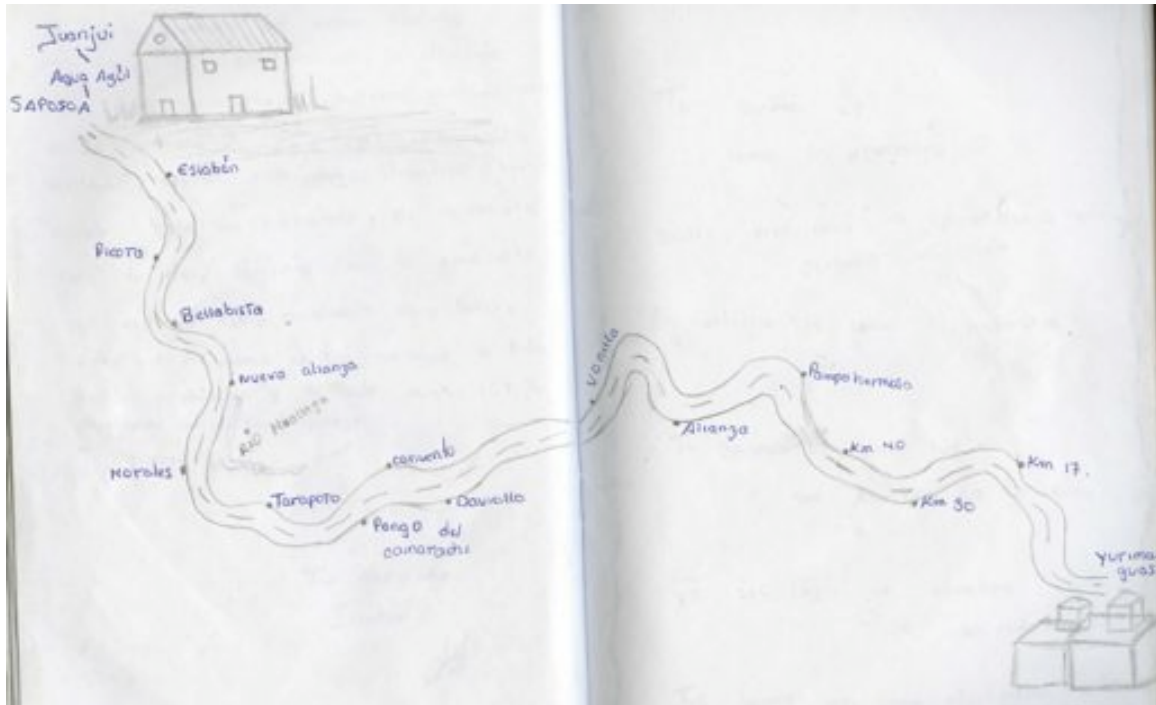 Juanjui
Agua Azúl
SAPOSOA
Eslabón
Picota
Bellabista
Nueva alianza
RIO
Morales
Tarapoto
convento
Davidllo
Pongo del
cainarachi
Alianza
Pampa hermosa
Km 40
Km 30
Km 17.
Yurima
guas